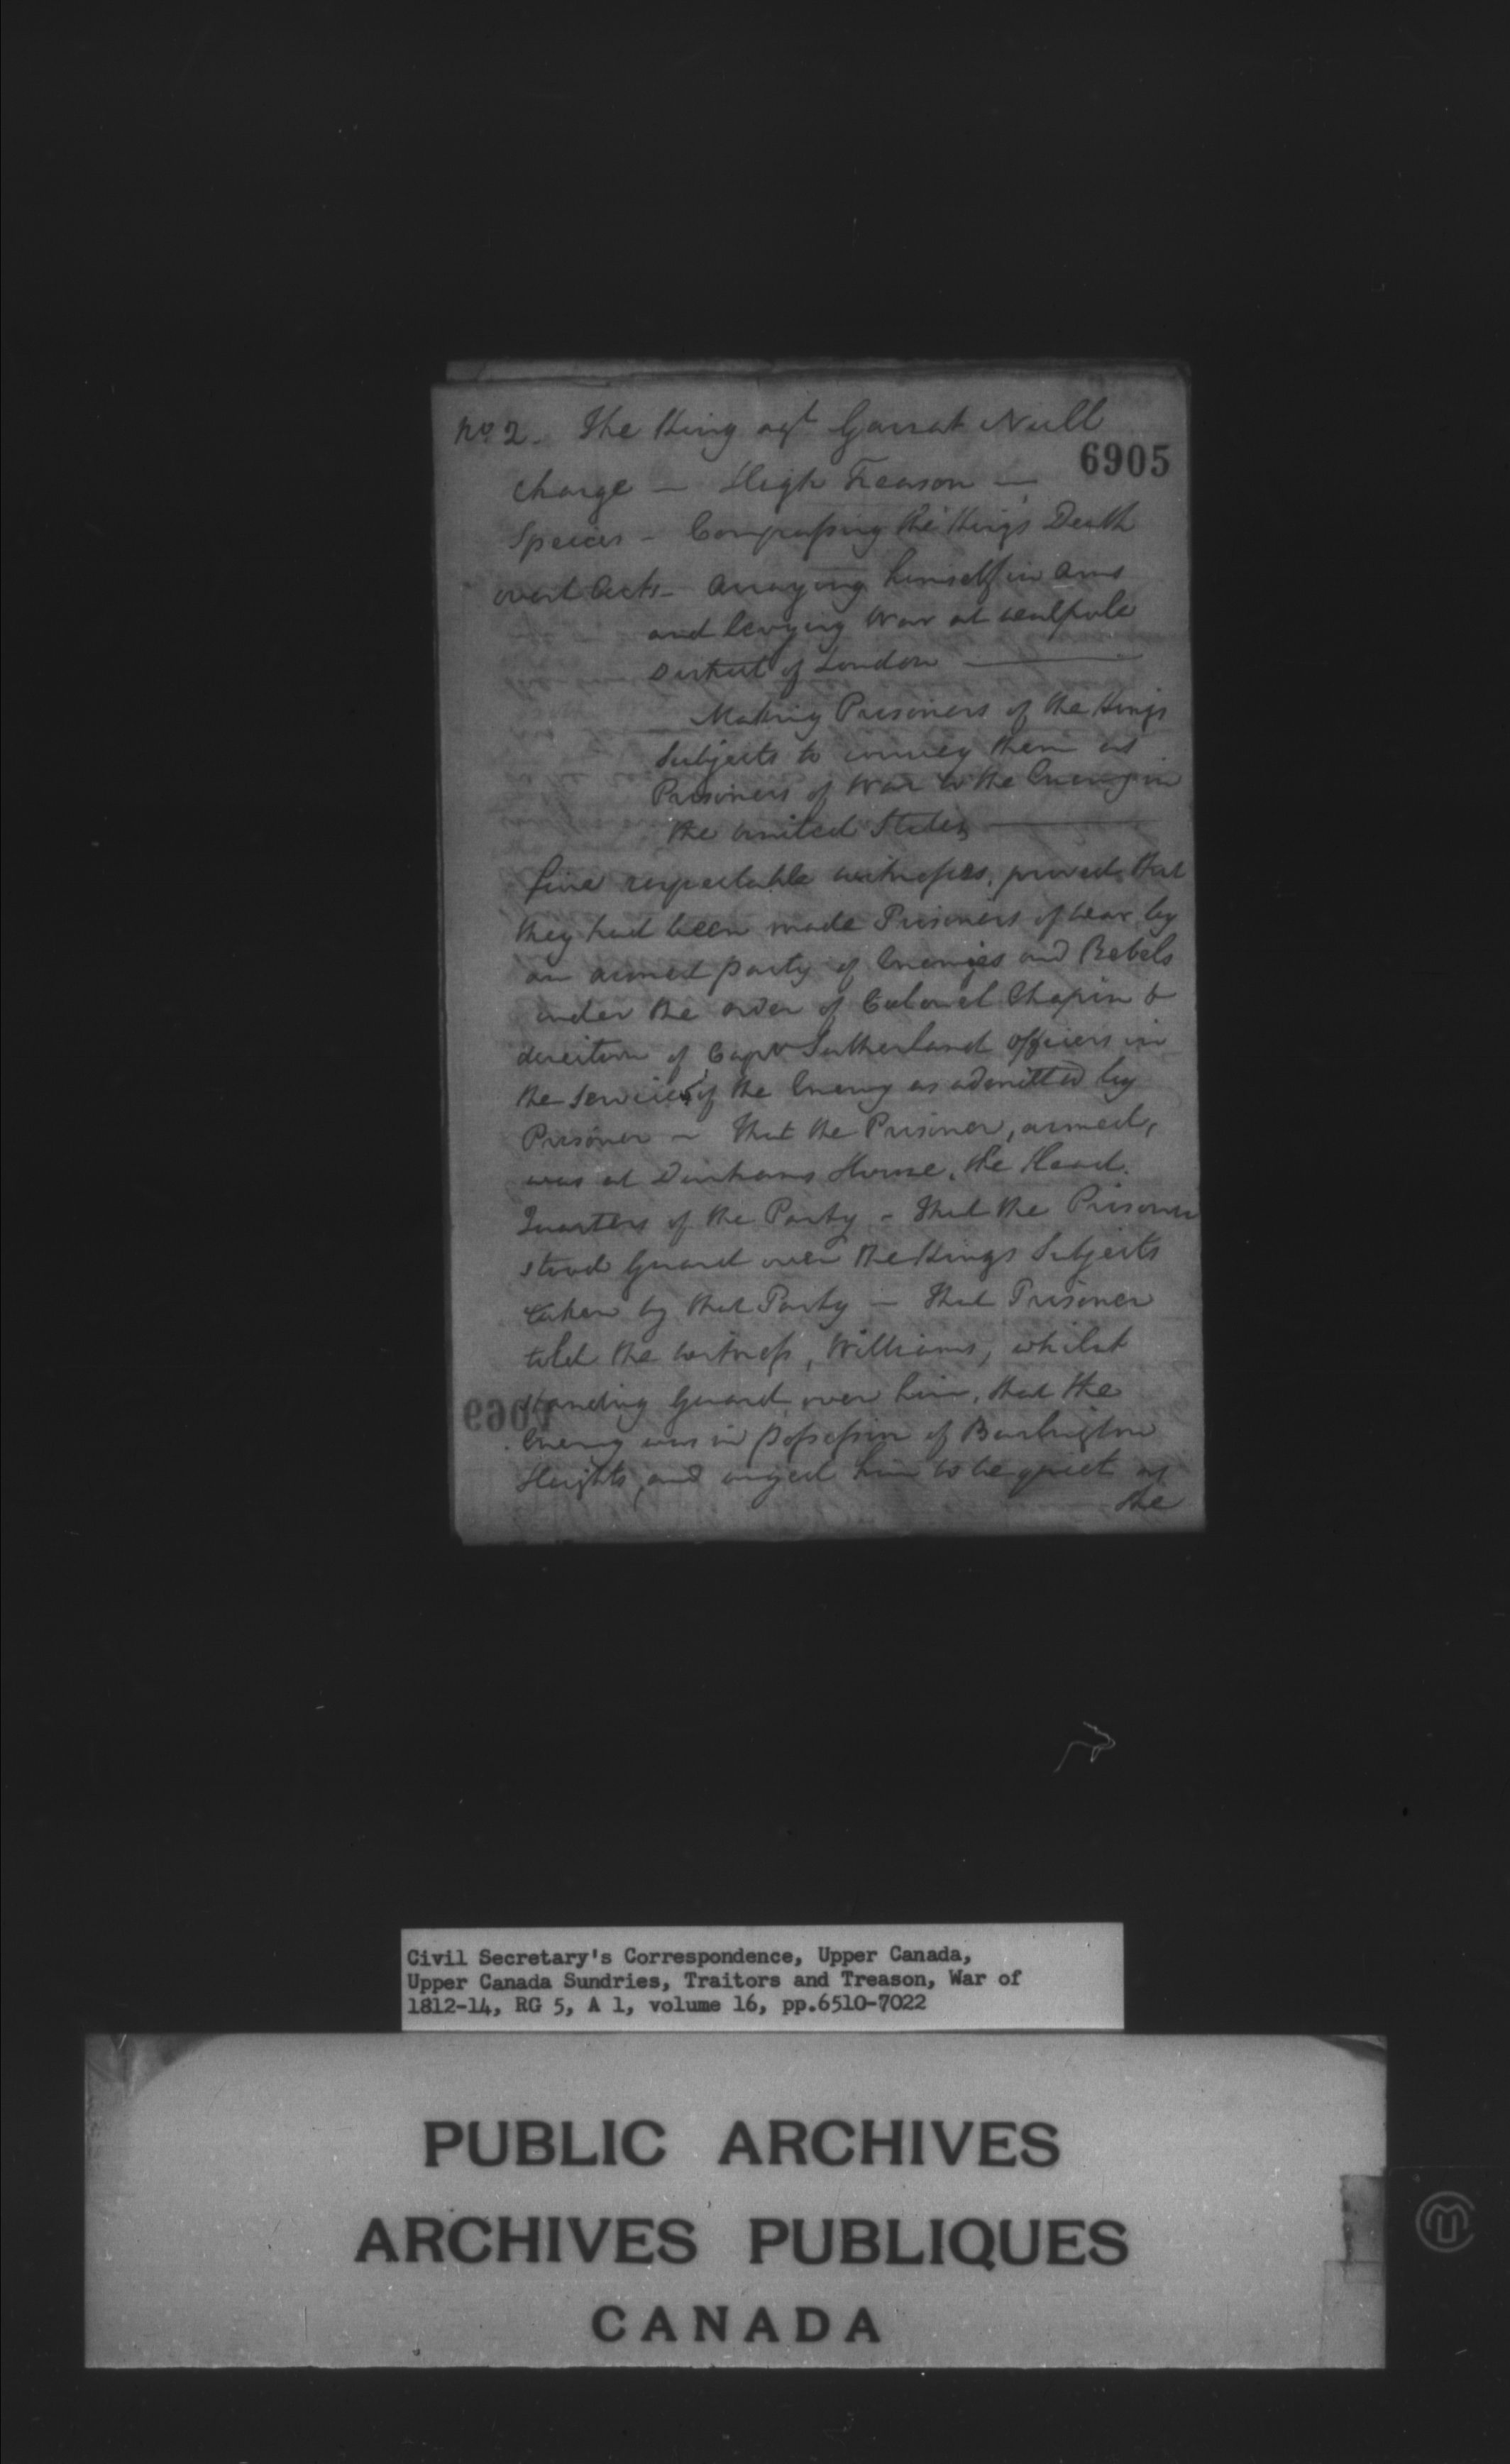 No. 2. The King agt Garrat Niell
6905
Charge — High Treason —
Species — Compassing the King's Death
overt Acts — Arraying himself in Arms
and levying War at Walpole
District of London —
Making Prisoners of the Kings
Subjects to convey them as
Prisoners of War to the Enemy in
the United States —
five respectable witnesses, proved that
they had been made Prisoners of War by
an armed party of Enemies and Rebels
under the order of Colonel Chapin &
direction of Capt Sutherland officers in
the Service of the Enemy as admitted by
Prisoner — That the Prisoner, armed,
was at Dunhams House, the Head
Quarters of the Party — That the Prisoner
stood Guard over the Kings Subjects
taken by that Party — That Prisoner
told the witness, Williams, whilst
standing Guard over him, that the
Enemy was in possession of Burlington
Heights, and urged him to be quiet as
the
Civil Secretary's Correspondence, Upper Canada,
Upper Canada Sundries, Traitors and Treason, War of
1812-14, RG 5, A 1, volume 16, pp.6510-7022
PUBLIC ARCHIVES
ARCHIVES PUBLIQUES
CANADA